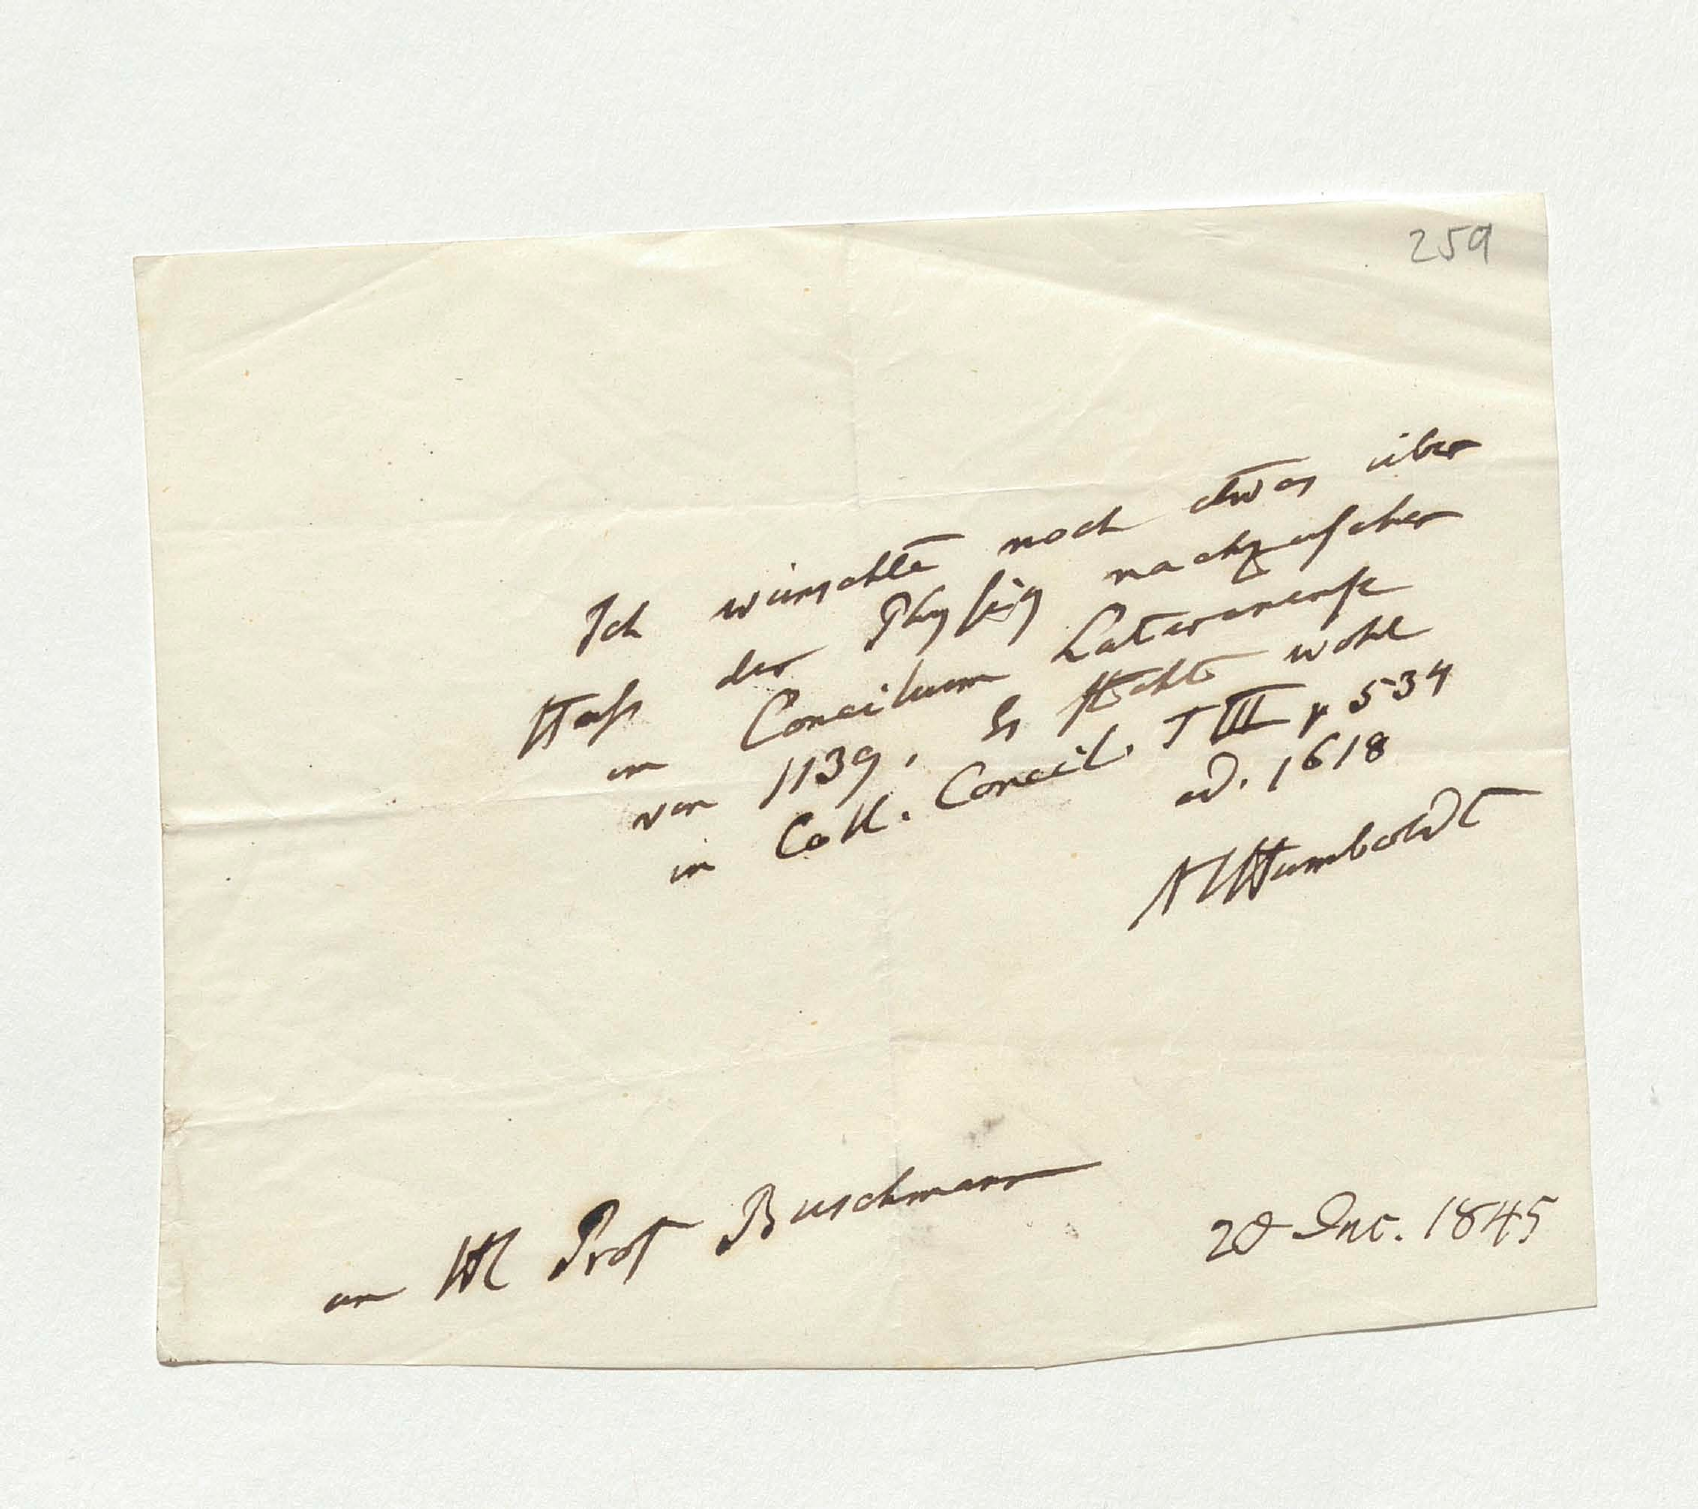 259
Ich wünschte noch etwas über
Haß der Physik nachzusehen
im Concilium Lateranense
von 1139. Es steht wohl
in Coll. Concil. T III p 534
ed. 1618
AlHumboldt
an HE Prof Buschmann
20 Dec. 1845